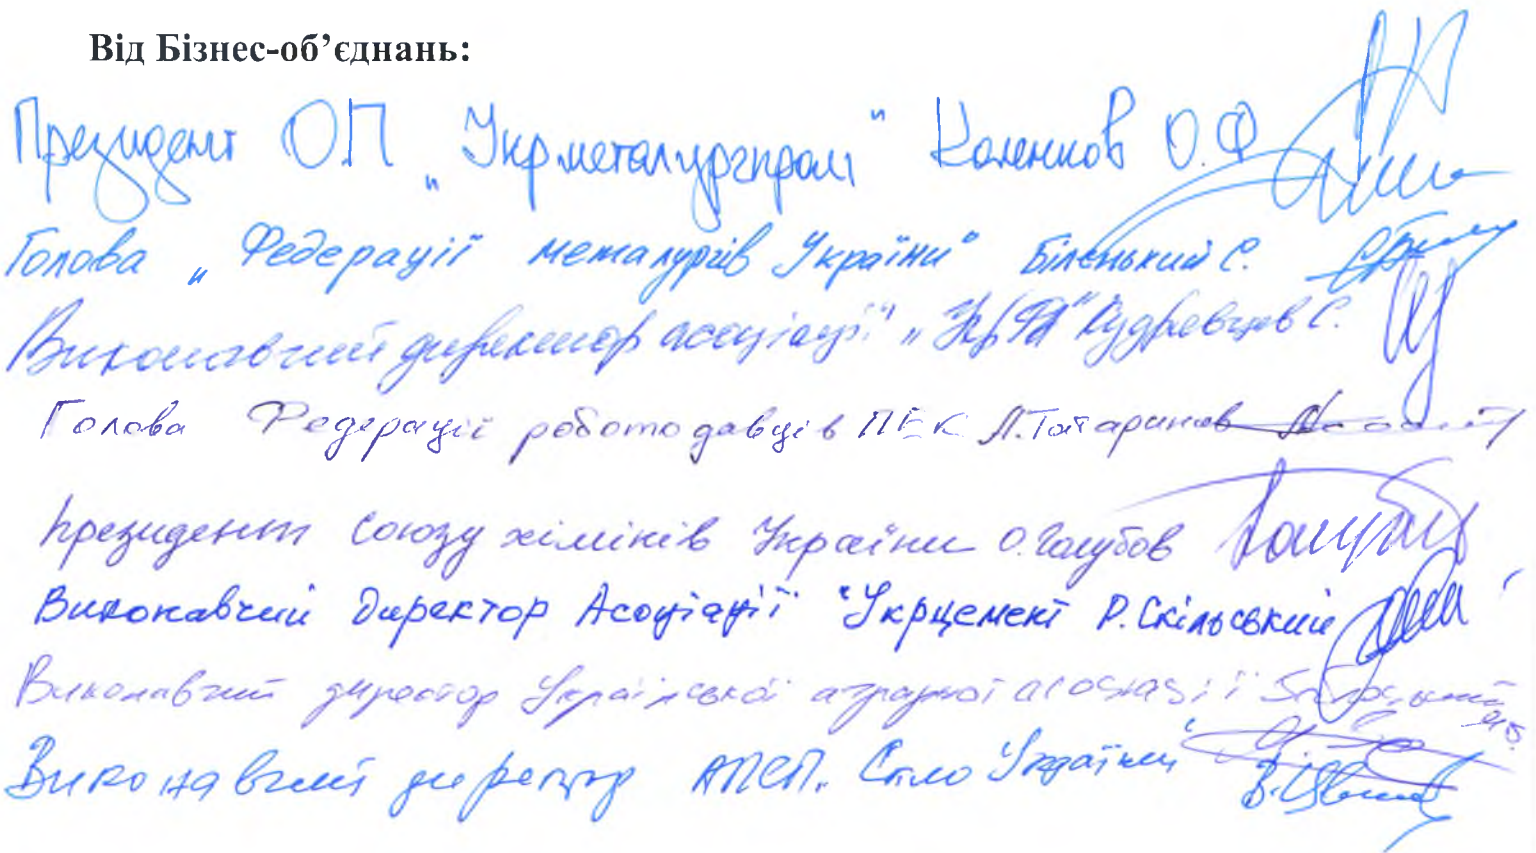 Від Бізнес-об’єднань:
Президент О.П „Укрметалургпром“ Каленков О.Ф
Голова „Федерації металургів України“ Біленький С.
Виконавчий директор асоціації „УкрФА“ Кудрявцев С.
Голова Федерації роботодавців ПЕК Л.Татаринов
Президент Союзу хіміків України О.Голубов
Виконавчий директор Асоціації "Укрцемент Р.Скільський
Виконавчий директор Української аграрної асоціації
Виконавчий директор АПСП. Скло України"